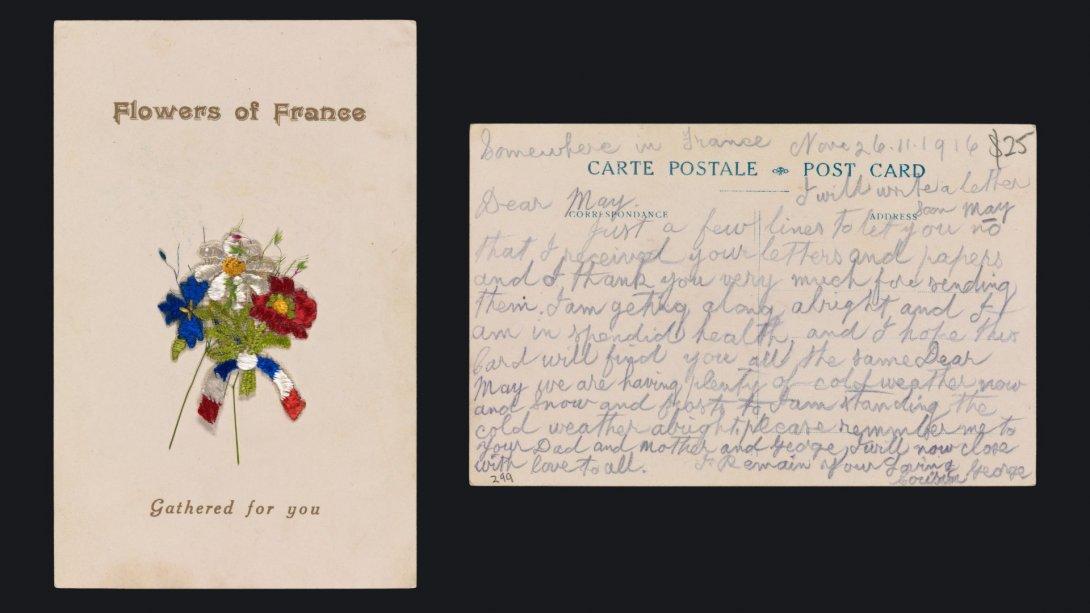 Flowers of France
Gathered for you
Somewhere in France Nov 26.11.1916 $25
CARTE POSTALE POST CARD
I will write a letter
Soon May
Dear May.
CORRESPONDANCE ADDRESS
Just a few lines to let you no
that I received your letters and papers
and I thank you very much for sending
them. I am geting along alright and I
am in spendid health, and I hope this
Card will find you all the same Dear
May we are having plenty of cold weather now
and Snow and frosts to I am standing the
cold weather alright please remmber me to
your Dad and Mother and George I will now close
with love to all. I Remain Your Loving
Cousin George
299